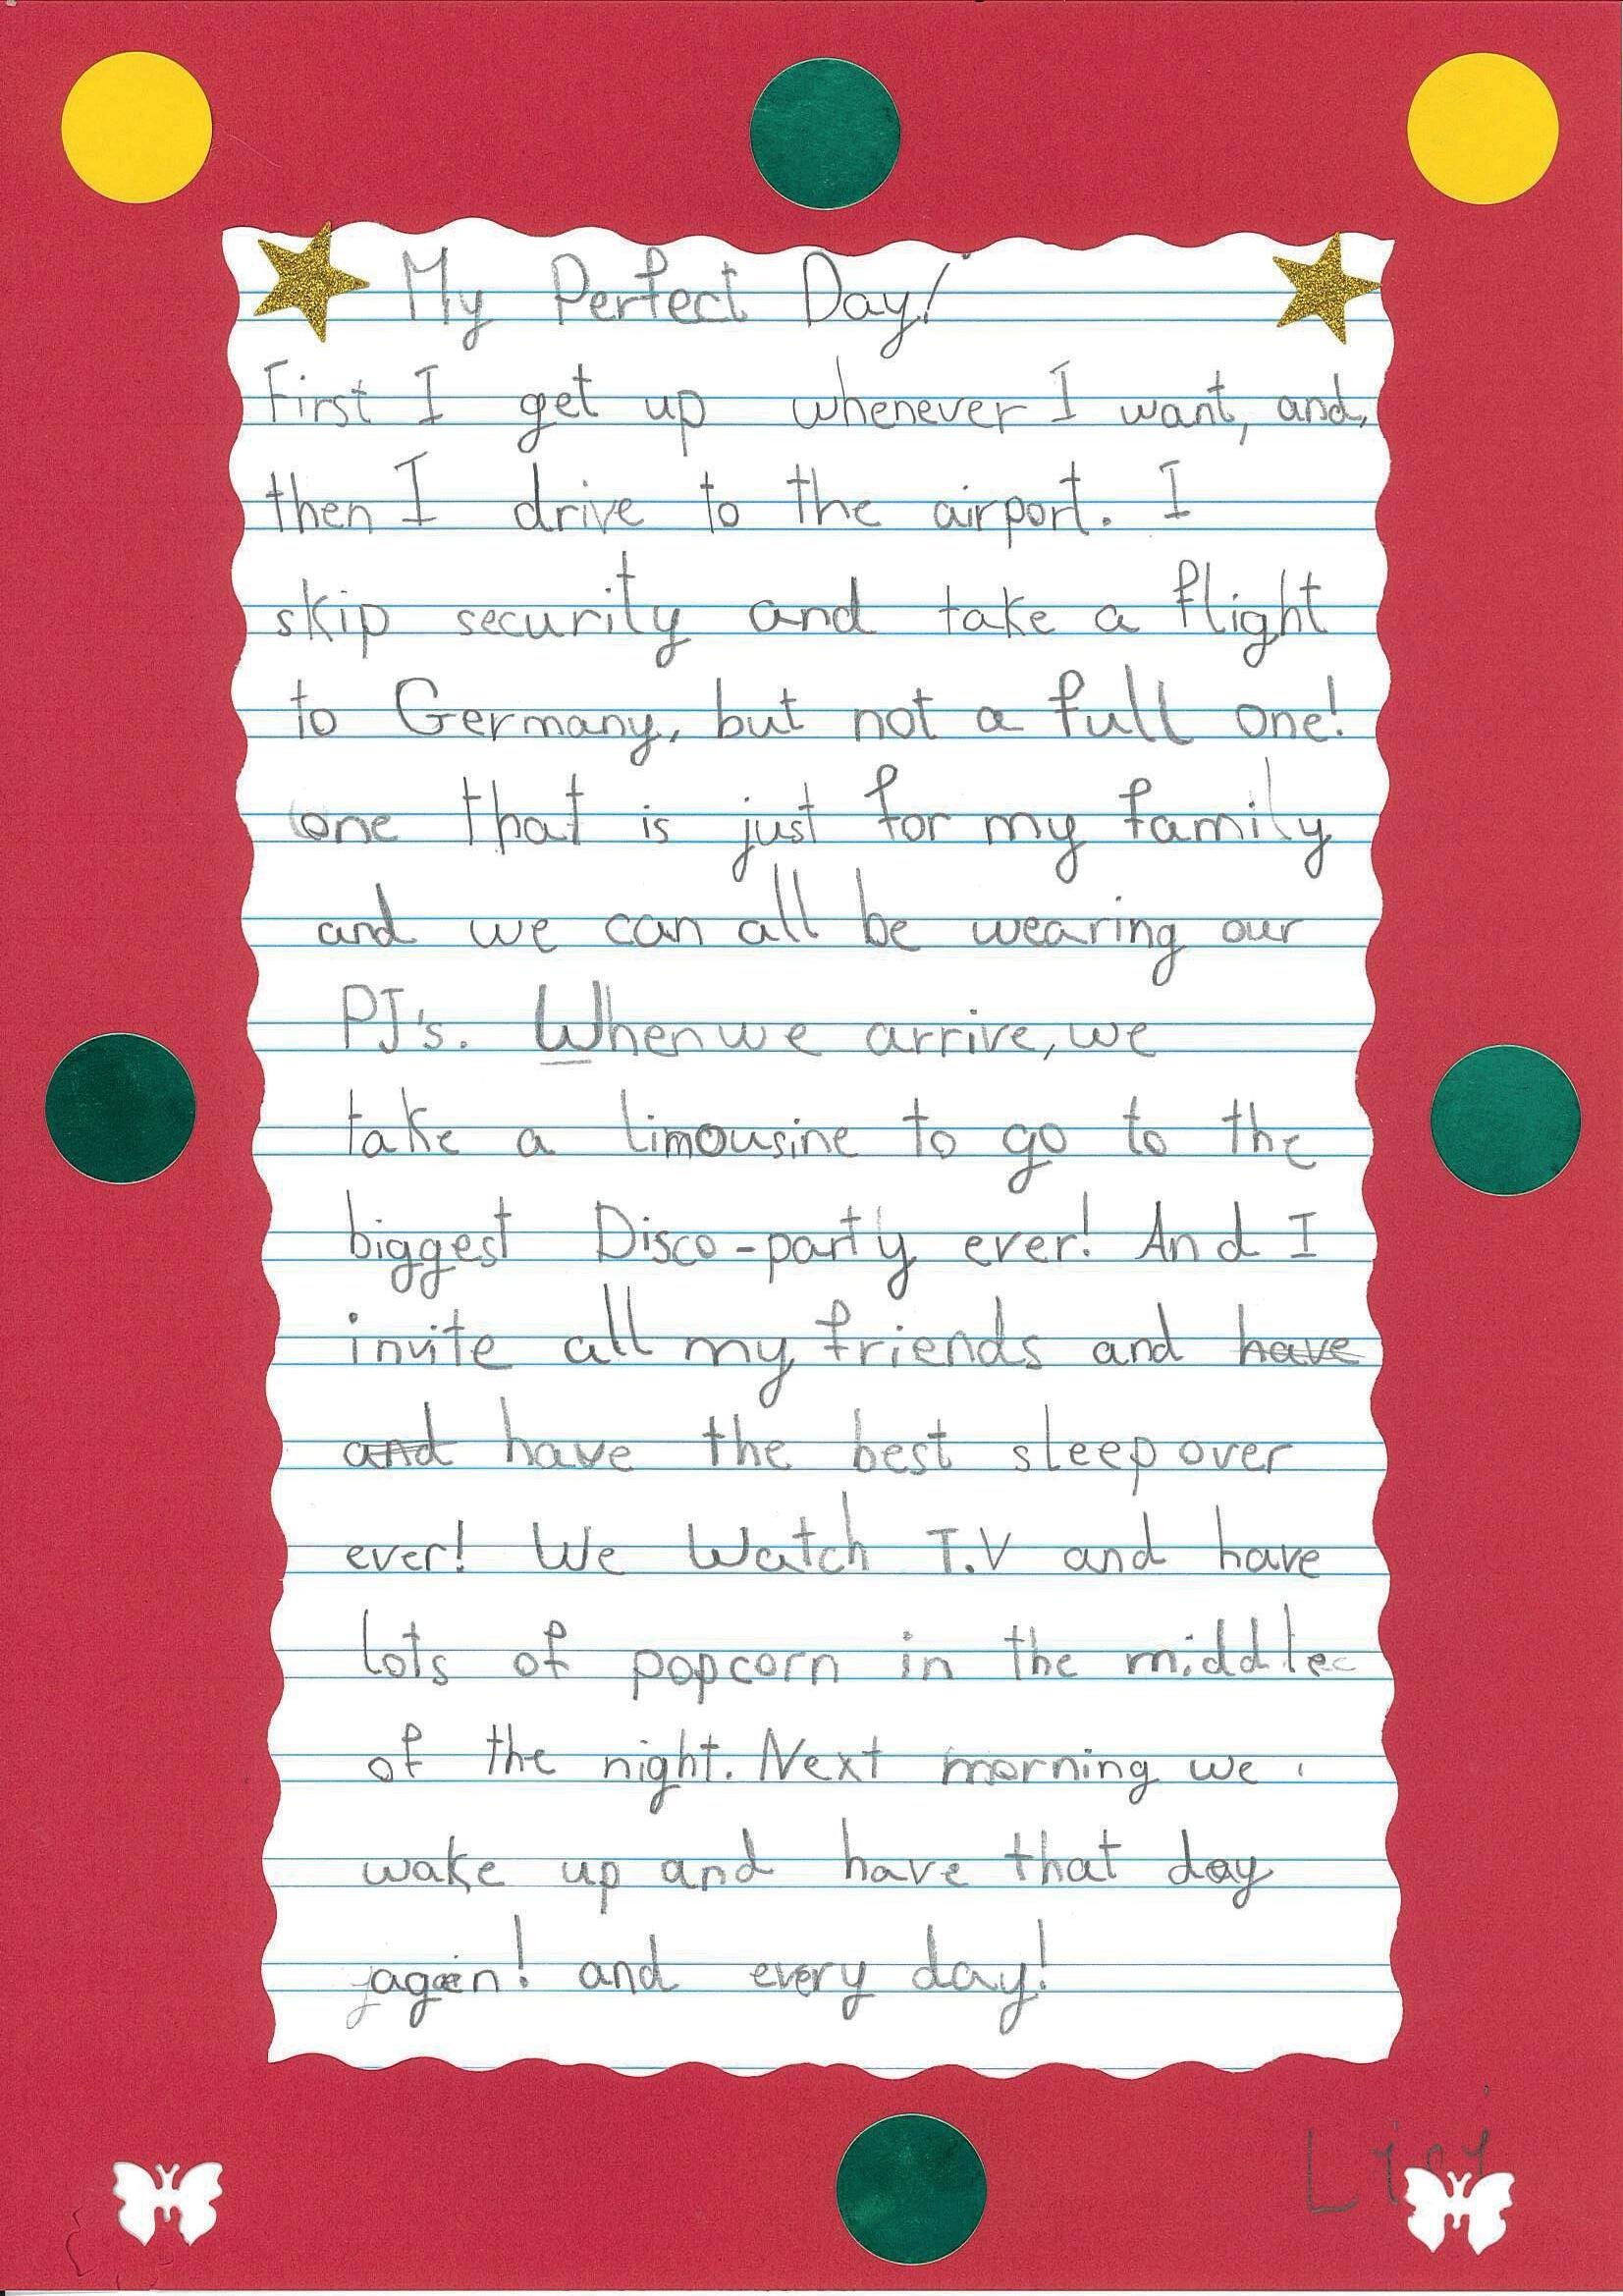 My Perfect Day!
First I get up whenever I want, and,
then I drive to the airport. I
skip security and take a flight
to Germany, but not a full one!
one that is just for my family
and we can all be wearing our
PJ's. When we arrive, we
take a limousine to go to the
biggest Disco-party ever! And I
invite all my friends and have
and have the best sleepover
ever! We Watch T.V and have
lots of popcorn in the middle
of the night. Next morning we
wake up and have that day
again! and every day!